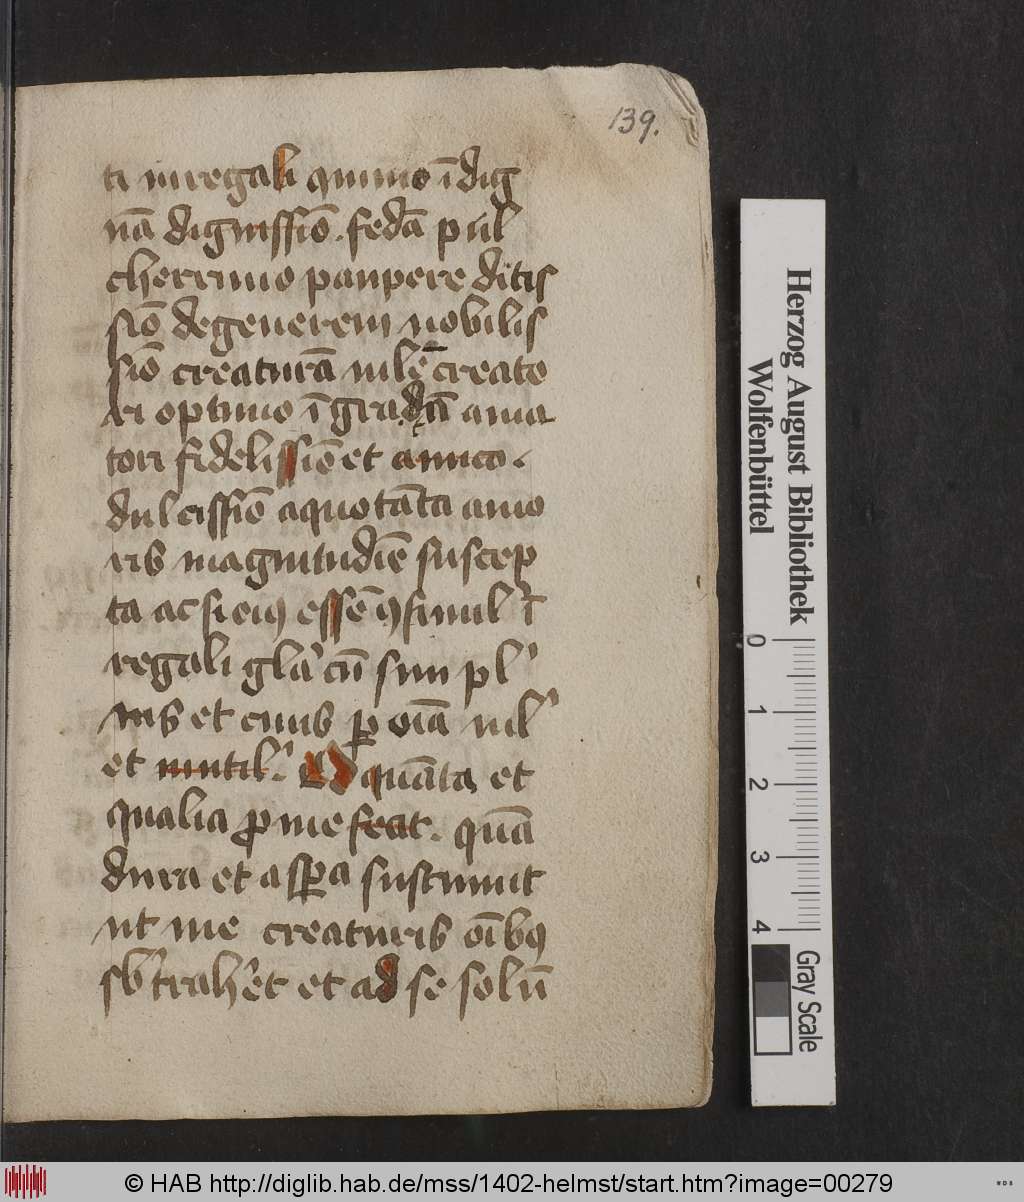 139.
ti inregali quinio īdig
nā dignissiō. fedā pul
cherrimo paupere ditis
siō degenerem nobilis
siō creaturā uilē creato
ri optimo īgratā ama
tori fidelissiō et amico.
dulcissiō aquotāta amo
ris magnitudīe suscep
ta ac si eiꝰ essē ꝯsimilˀ ī
regali glā cū sim plˀ
nis et cuius ꝑ oīa uilˀ
et inutilˀ. O quāta et
qualia ꝓ me fecit. quā
dura et asꝑa sustinuit
ut me creaturis oībꝰ
sbˀtrahˀet et ad se solū
Herzog August Bibliothek
Wolfenbüttel
0 1 2 3 4
Gray Scale
© HAB http://diglib.hab.de/mss/1402-helmst/start.htm?image=00279